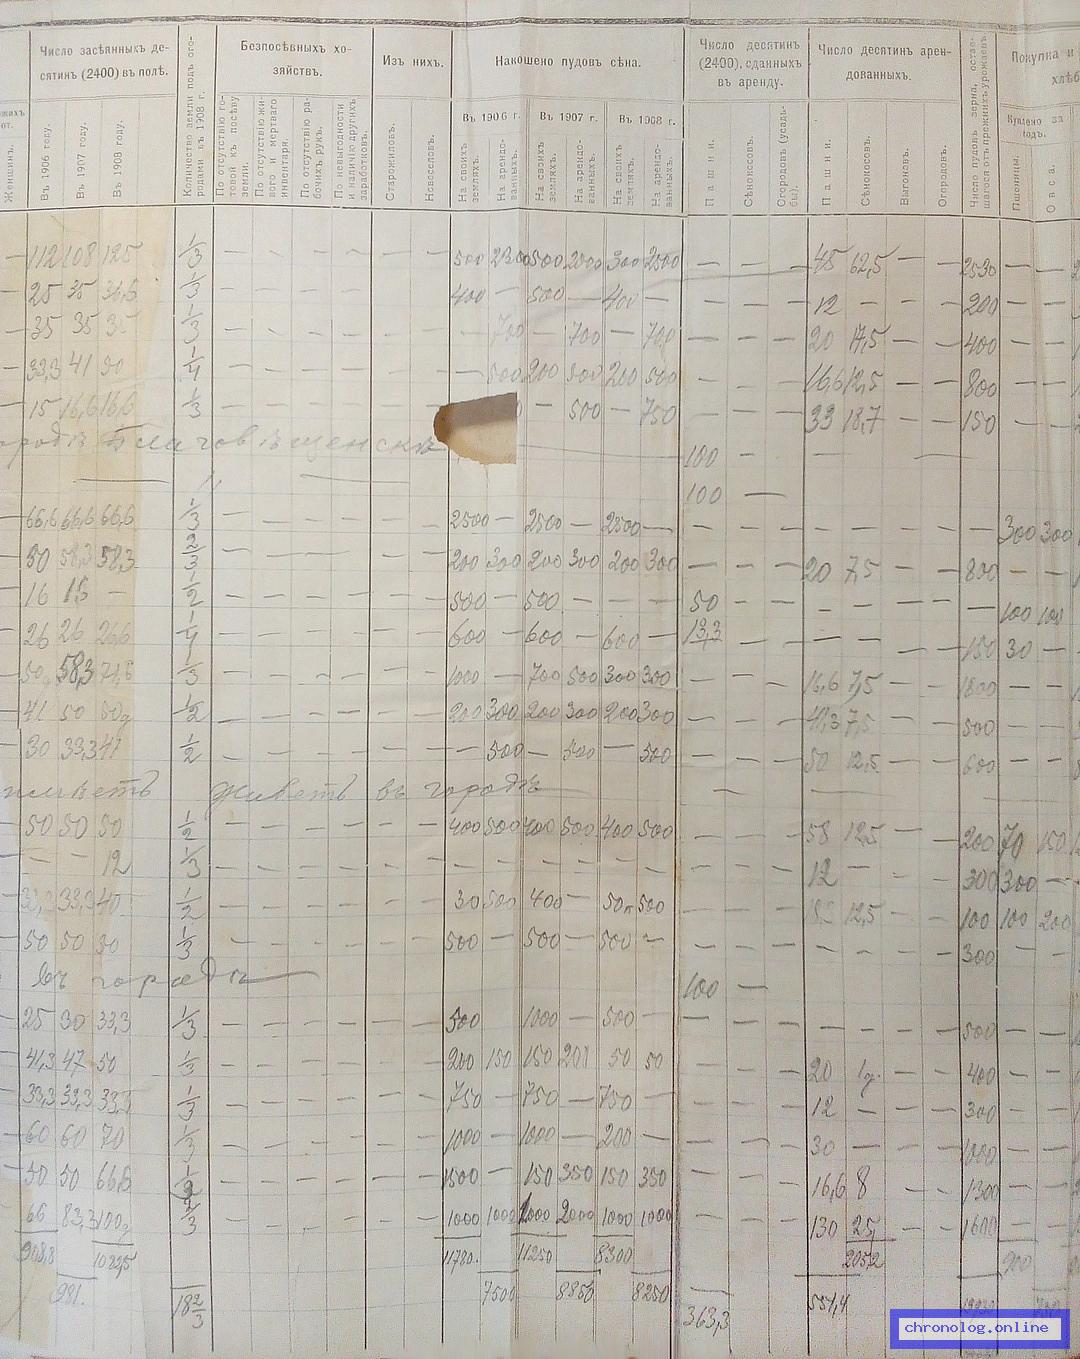 Число засѣянныхъ де-
сятинъ (2400) въ полѣ.
Женщинъ.
Въ 1906 году.
Въ 1907 году.
Въ 1908 году.
Количество земли подъ ого-
родами въ 1908 г.
Безпосѣвныхъ хо-
зяйствъ.
По отсутствію го-
товой къ посѣву
земли.
По отсутствію жи-
вого и мертваго
инвентаря.
По отсутствію ра-
бочихъ рукъ.
По невыгодности
и наличію другихъ
заработковъ.
Изъ нихъ.
Старожиловъ.
Новоселовъ.
Накошено пудовъ сѣна.
Въ 1906 г.
Въ 1907 г.
Въ 1908 г.
На своихъ
земляхъ.
На арендо-
ванныхъ.
На своихъ
земляхъ.
На арендо-
ванныхъ.
На своихъ
земляхъ.
На арендо-
ванныхъ.
Число десятинъ
(2400), сданныхъ
въ аренду.
Пашни.
Сѣнокосовъ.
Огородовъ (усадь-
бы).
Число десятинъ арен-
дованныхъ.
Пашни.
Сѣнокосовъ.
Выгоновъ.
Огородовъ.
Число пудовъ зерна, остав-
шагося отъ прежнихъ урожаевъ
Покупка и
хлѣб
Куплено за
годъ.
Пшеницы.
Овса.
— 112 108 125 1/3 — — — — — — 500 2300 500 2000 300 2500 — — — 45 62,5 — — 2530 — —
— 25 35 36,6 1/3 — — — — — — 400 — 500 — 400 — — — — 12 — — — 200 — —
— 35 35 35 1/3 — — — — — — — 700 — 700 — 700 — — — 20 17,5 — — 400 — —
— 33,3 41 50 1/4 — — — — — — — 500 200 500 200 500 — — — 16,6 12,5 — — 800 — —
— 15 16,6 16,6 1/3 — — — — — — — 500 — 750 — — — 33 18,7 — — 150 — —
городѣ Благовѣщенскѣ 100 —
100 —
— 66,6 66,6 66,6 1/3 — — — — — — 2500 — 2500 — 2500 — — — — — — — — — 300 300
— 50 58,3 58,3 2/3 — — — — — — 200 300 200 300 200 300 — — — 20 7,5 — — 800 — —
— 16 15 — 1/2 — — — — — — 500 — 500 — — — 50 — — — — — — — 100 100
— 26 26 26,6 1/4 — — — — — — 600 — 600 — 600 — 13,3 — — — — — — 150 30 —
— 50 58,3 71,6 1/3 — — — — — — 1000 — 700 500 300 300 — — — 16,6 7,5 — — 1800 — —
— 41 50 50 1/2 — — — — — — 200 300 200 300 200 300 — — — 41,3 7,5 — — 500 — —
— 30 33,3 41 1/2 — — — — — — — 500 — 500 — 500 — — — 50 12,5 — — 600 — —
живетъ въ городѣ
— 50 50 50 1/2 — — — — — — 400 500 400 500 400 500 — — — 58 12,5 — — 200 70 150
— — — 12 1/3 — — — — — — — — — — — — — — — 12 — — — 300 300 —
— 33,3 33,3 40 1/2 — — — — — — 30 500 400 — 500 — — — 12,5 — — 100 100 200
— 50 50 50 1/3 — — — — — — 500 — 500 — 500 — — — — — — — — 300 — —
въ городѣ 100 —
— 25 30 33,3 1/3 — — — — — — 500 1000 — 500 — — — — — — — — 500 — —
— 41,3 47 50 1/3 — — — — — — 200 150 150 201 50 50 — — — 20 — — 400 — —
— 33,3 33,3 33,3 1/3 — — — — — — 750 — 750 — 750 — — — — 12 — — — 300 — —
— 60 60 70 1/3 — — — — — — 1000 — 1000 — 200 — — — — 30 — — — 1000 — —
— 50 50 66,6 — — — — — — 1500 — 150 350 150 350 — — — 16,6 8 — — 1300 — —
— 66 83,3 100 2/3 — — — — — — 1000 1000 1000 2000 1000 1000 — — — 130 25 — — 1600 — —
908,8 1022,5 11780. 11250 8300 205,2 900
981. 18 2/3 7500 8850 8250 363,3 551,4
chronolog.online